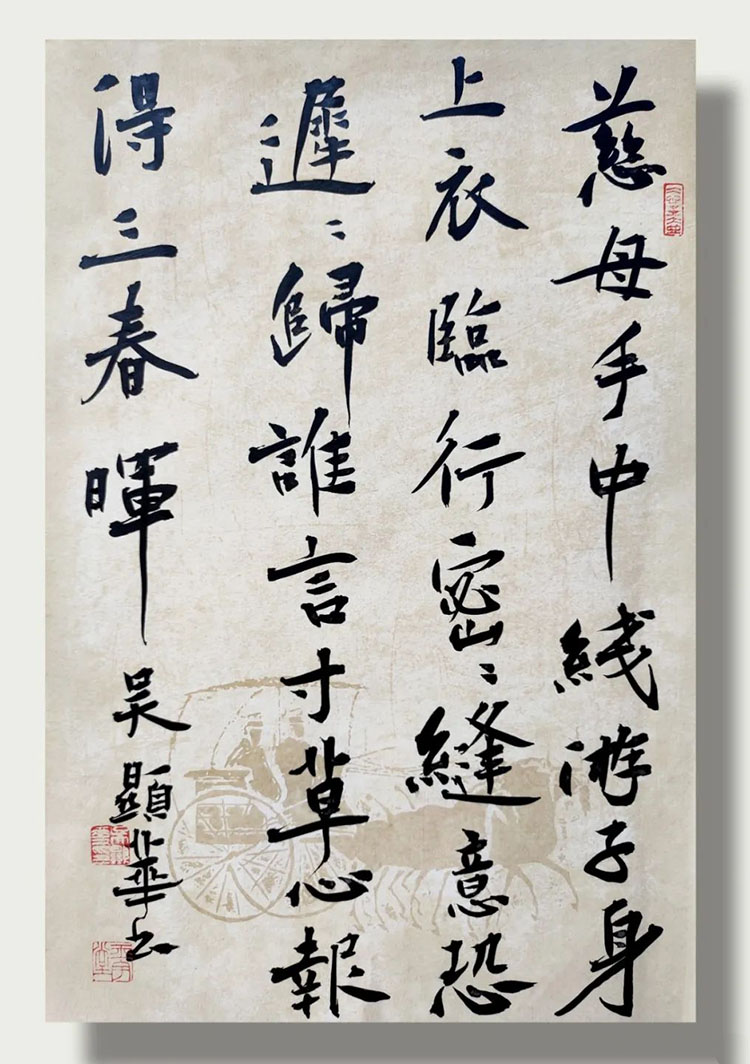 慈母手中綫游子身
上衣臨行密〻縫意恐
遲〻歸誰言寸草心報
得三春暉 吳顯華书